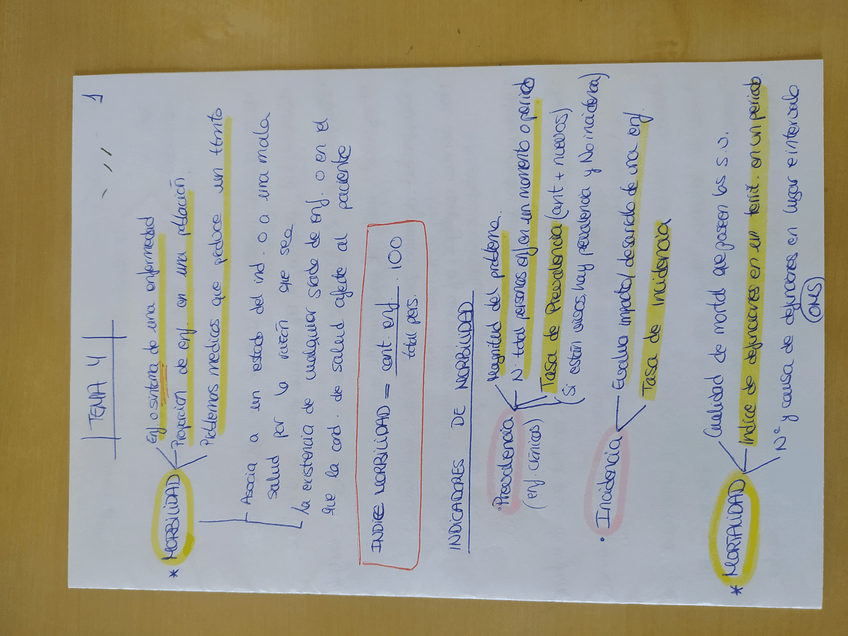 TEMA 4
1
* MORBILIDAD
Enf. o sintoma de una enfermedad
Proporción de enf. en una población
Problemas medicos que produce un ttmto
Asocia a un estado del ind. o a una mala
salud por la razón que sea
la existencia de cualquier clase de enf. o en el
que la cond. de salud afecte al paciente
INDICE MORBILIDAD = cant. enf. / total pers. · 100
INDICADORES DE MORBILIDAD
· Prevalencia
(enf crónicas)
Magnitud del problema
Nº total personas enf en un momento o periodo
Tasa de Prevalencia (ant + nuevos)
(Si están vivos hay prevalencia y No incidencia)
· Incidencia
Evalua impacto / desarrollo de una enf.
Tasa de incidencia
* MORTALIDAD
Cualidad de mortal que poseen los s.v.
Indice de defunciones en un territ. en un periodo
Nº y causa de defunciones en lugar e intervalo
OMS